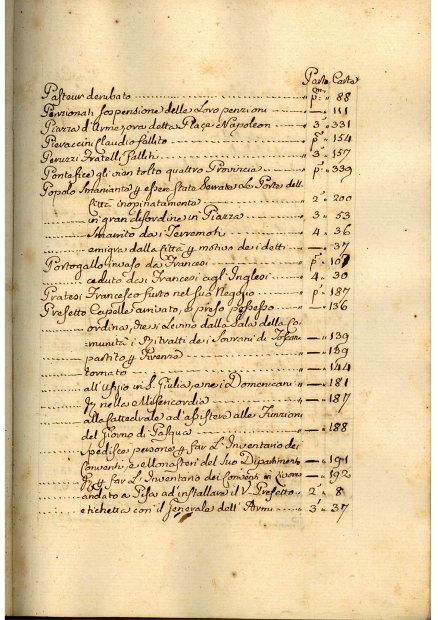 Parte Carte
Pasteur derubato " pma " 88
Penzionati sospensione delle Loro penzioni " — " 111
Piazza d'Arme, ora detta Place Napoleon " 3a " 331
Pievaccini Claudio fallito " pa " 154
Peruzzi Fratelli falliti " 3a " 157
Pontefice gli vien tolto quattro Provincie " pa " 339
Popolo Smaniante p essere stata Serrata La Porta dell
Città inopinatamente " 2a " 200
in gran disordine in Piazza " 3 " 53
Smarrito da i Terremoti " 4 " 36
emigra dalla Città p motivo dei detti " — " 37
Portogallo invaso da Francesi " pa " 107
ceduto da i Francesi agl'Inglesi " 4 " 30
Pratesi Francesco furto nel suo Negozio " pa " 187
Prefetto Capelle arrivato, e preso possesso " — " 136
ordina, che si Levino dalla Sala della Co-
munità i Ritratti de i Sovrani di Toscana " — " 139
partito p Firenze " — " 139
tornato " — " 144
all'Ufizio in S. Giulia, e ne i Domenicani " — " 181
nella Misericordia " — " 187
alla Cattedrale ad assistere alle Funzioni
del Giorno di Pasqua " — " 188
spedisce persone p far L'Inventario dei
Conventi, e Monasteri del Suo Dipartimento " — " 191
p far L'Inventario dei Conventi in Livorno " — " 192
andato a Pisa ad installare il V. Prefetto " 2a " 8
etichetta con il Generale dell'Armi " 3a " 37